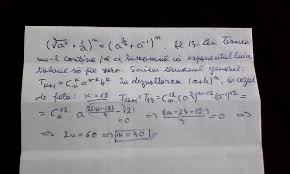 (∛a² + 1/a)ⁿ = (a^(2/3) + a⁻¹)ⁿ. At 13-lea termen
nu-l conține pe a înseamnă că exponentul lui a
trebuie să fie zero. Scriem termenul general:
T_(k+1) = C_n^k a^(n-k) b^k în dezvoltarea (a+b)ⁿ, în cazul
de față: k=12 T_(k+1) = T_13 = C_n^12 (a^(2/3))^(n-12) (a⁻¹)^12 =
= C_n^12 · a^(2(n-12)/3 - 12) ⇒ (2n-24-12·3)/3 = 0 ⇒
=0
⇒ 2n=60 ⇒ n=30